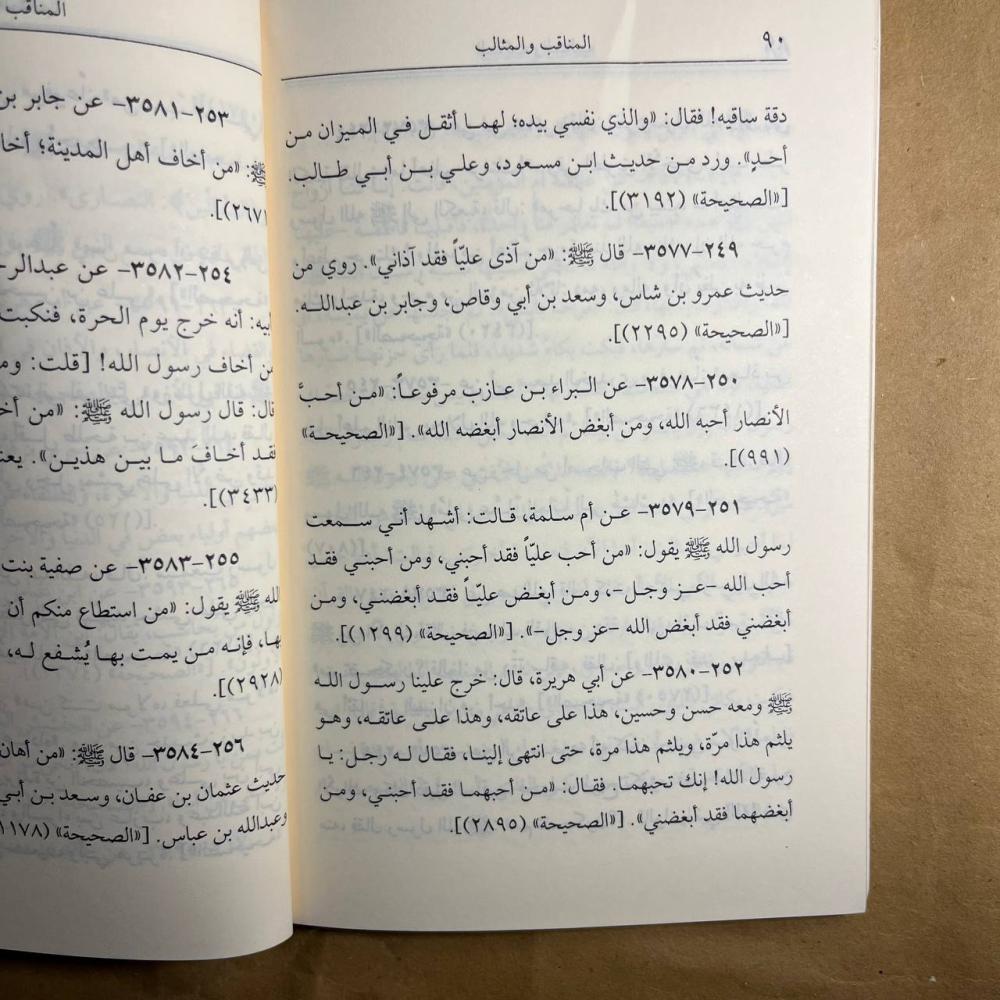 ٩٠
المناقب والمثالب
دقة ساقيه! فقال: «والذي نفسي بيده؛ لهما أثقل في الميزان من
أحدٍ». ورد من حديث ابن مسعود، وعلي بن أبي طالب.
[«الصحيحة» (٣١٩٢)].
٢٤٩-٣٥٧٧- قال ﷺ: «من آذى عليّاً فقد آذاني». روي من
حديث عمرو بن شاس، وسعد بن أبي وقاص، وجابر بن عبدالله.
[«الصحيحة» (٢٢٩٥)].
٢٥٠-٣٥٧٨- عن البراء بن عازب مرفوعاً: «من أحبَّ
الأنصار أحبه الله، ومن أبغض الأنصار أبغضه الله». [«الصحيحة»
(٩٩١)].
٢٥١-٣٥٧٩- عن أم سلمة، قالت: أشهد أني سمعت
رسول الله ﷺ يقول: «من أحب عليّاً فقد أحبني، ومن أحبني فقد
أحب الله -عز وجل-، ومن أبغض عليّاً فقد أبغضني، ومن
أبغضني فقد أبغض الله -عز وجل-». [«الصحيحة» (١٢٩٩)].
٢٥٢-٣٥٨٠- عن أبي هريرة، قال: خرج علينا رسول الله
ﷺ ومعه حسن وحسين، هذا على عاتقه، وهذا على عاتقه، وهو
يلثم هذا مرّة، ويلثم هذا مرة، حتى انتهى إلينا، فقال له رجل: يا
رسول الله! إنك تحبهما. فقال: «من أحبهما فقد أحبني، ومن
أبغضهما فقد أبغضني». [«الصحيحة» (٢٨٩٥)].
المناقب
٢٥٣-٣٥٨١- عن جابر بن
ﷺ: «من أخاف أهل المدينة؛ أخا
(٢٦٧١)].
٢٥٤-٣٥٨٢- عن عبدالرح
أبيه: أنه خرج يوم الحرة، فنكبت
من أخاف رسول الله! [قلت: وم
قال: قال رسول الله ﷺ: «من أخ
فقد أخافَ ما بين هذين». يعن
(٣٤٣٣)].
٢٥٥-٣٥٨٣- عن صفية بنت
الله ﷺ يقول: «من استطاع منكم أن
بها، فإنه من يمت بها يُشفع له،
(٢٩٢٨)].
٢٥٦-٣٥٨٤- قال ﷺ: «من أهان
حديث عثمان بن عفان، وسعد بن أبي
وعبدالله بن عباس. [«الصحيحة» (١١٧٨